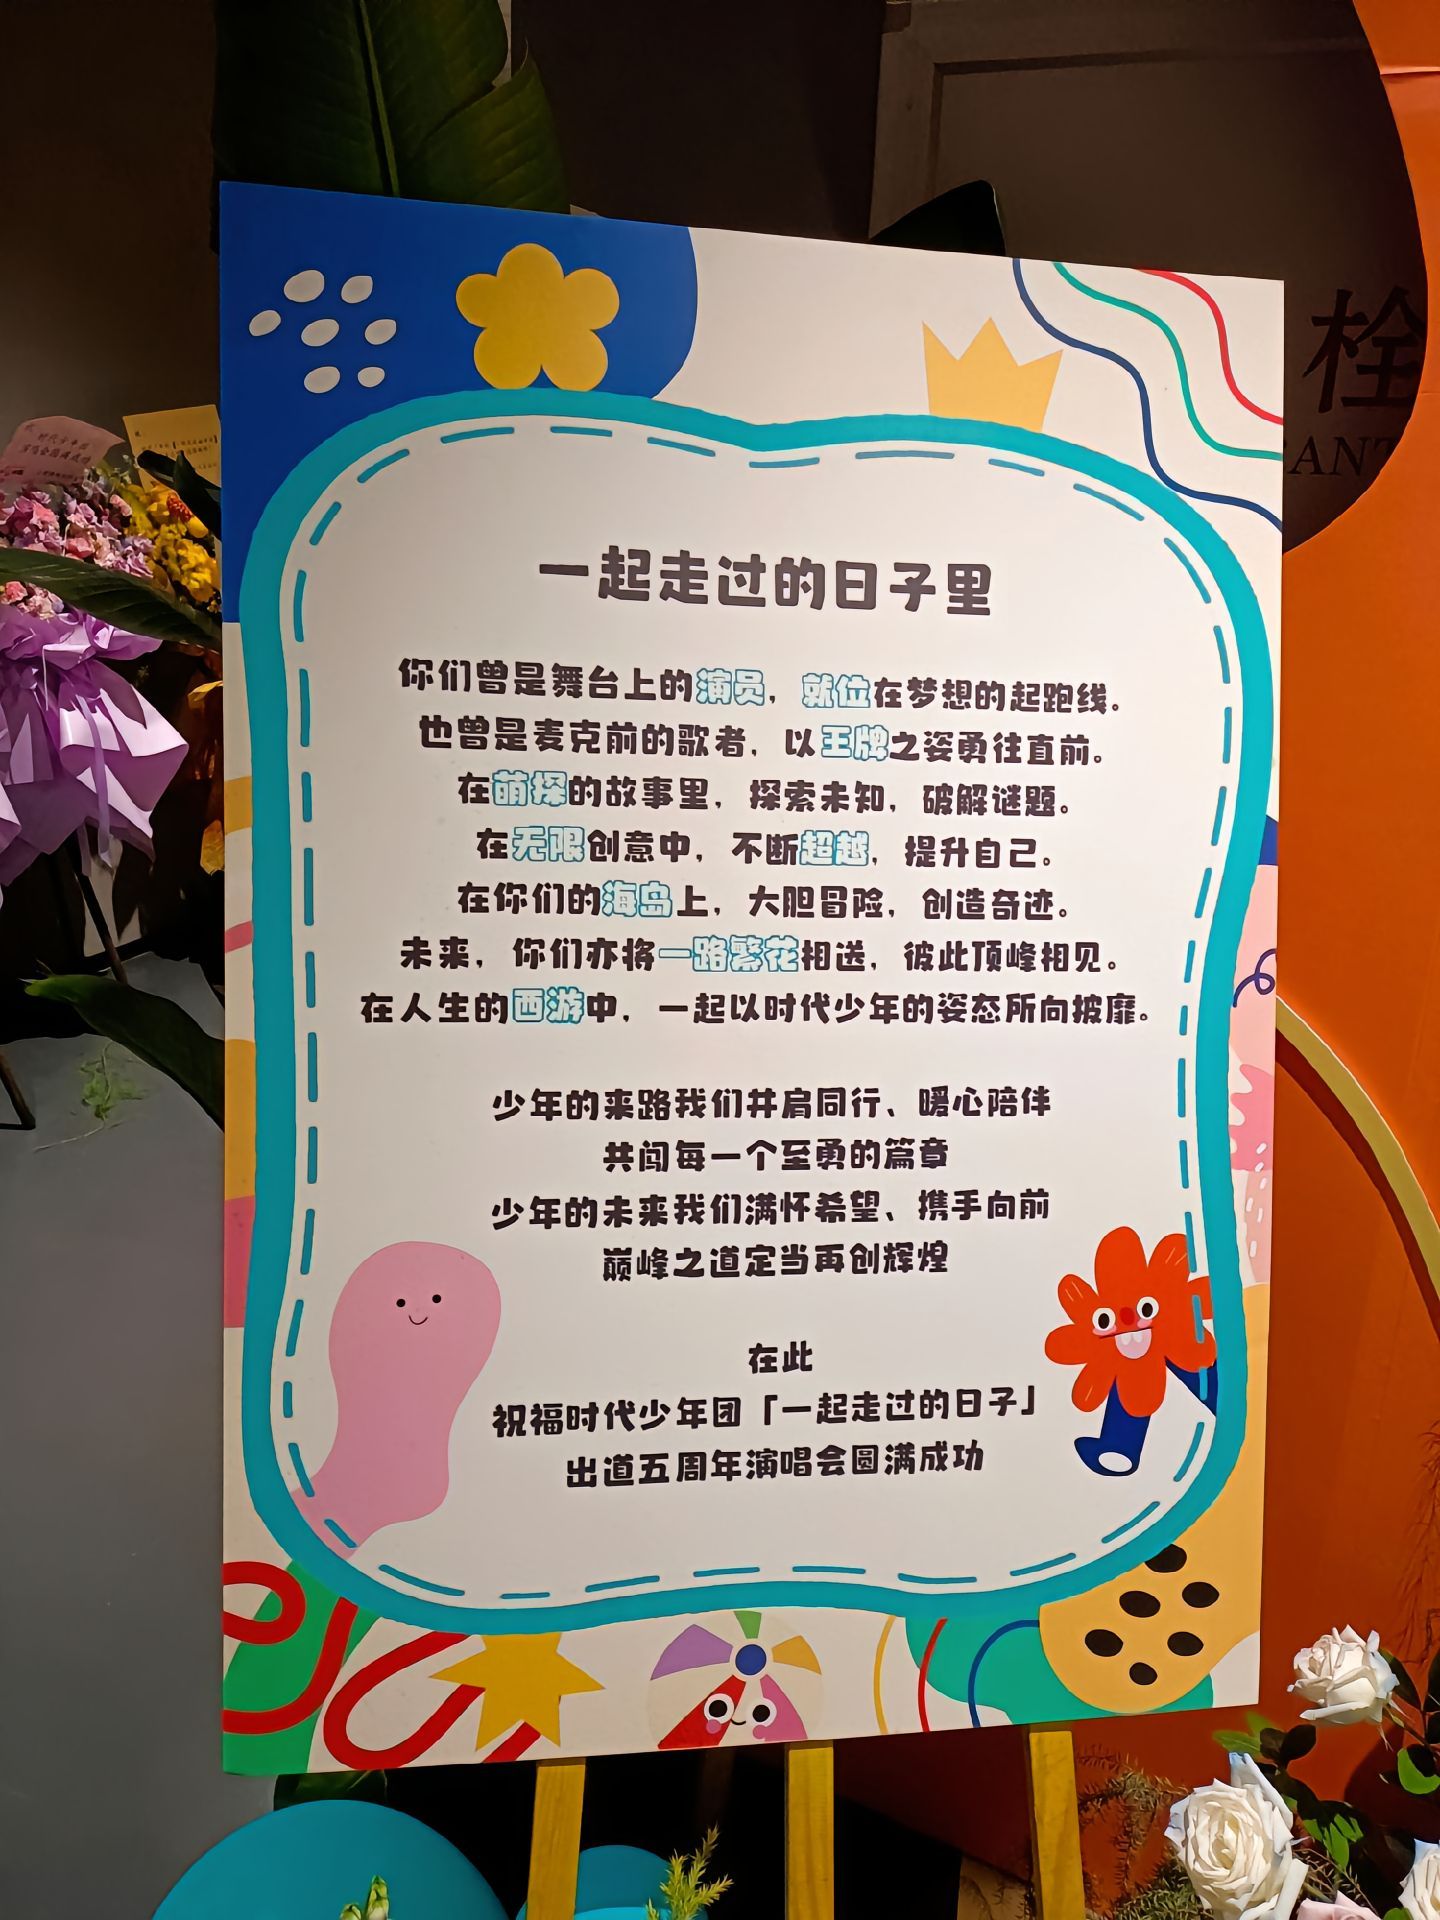 一起走过的日子里
你们曾是舞台上的演员，就位在梦想的起跑线。
也曾是麦克前的歌者，以王牌之姿勇往直前。
在萌探的故事里，探索未知，破解谜题。
在无限创意中，不断超越，提升自己。
在你们的海岛上，大胆冒险，创造奇迹。
未来，你们亦将一路繁花相送，彼此顶峰相见。
在人生的西游中，一起以时代少年的姿态所向披靡。
少年的来路我们并肩同行、暖心陪伴
共闯每一个至勇的篇章
少年的未来我们满怀希望、携手向前
巅峰之道定当再创辉煌
在此
祝福时代少年团「一起走过的日子」
出道五周年演唱会圆满成功
栓